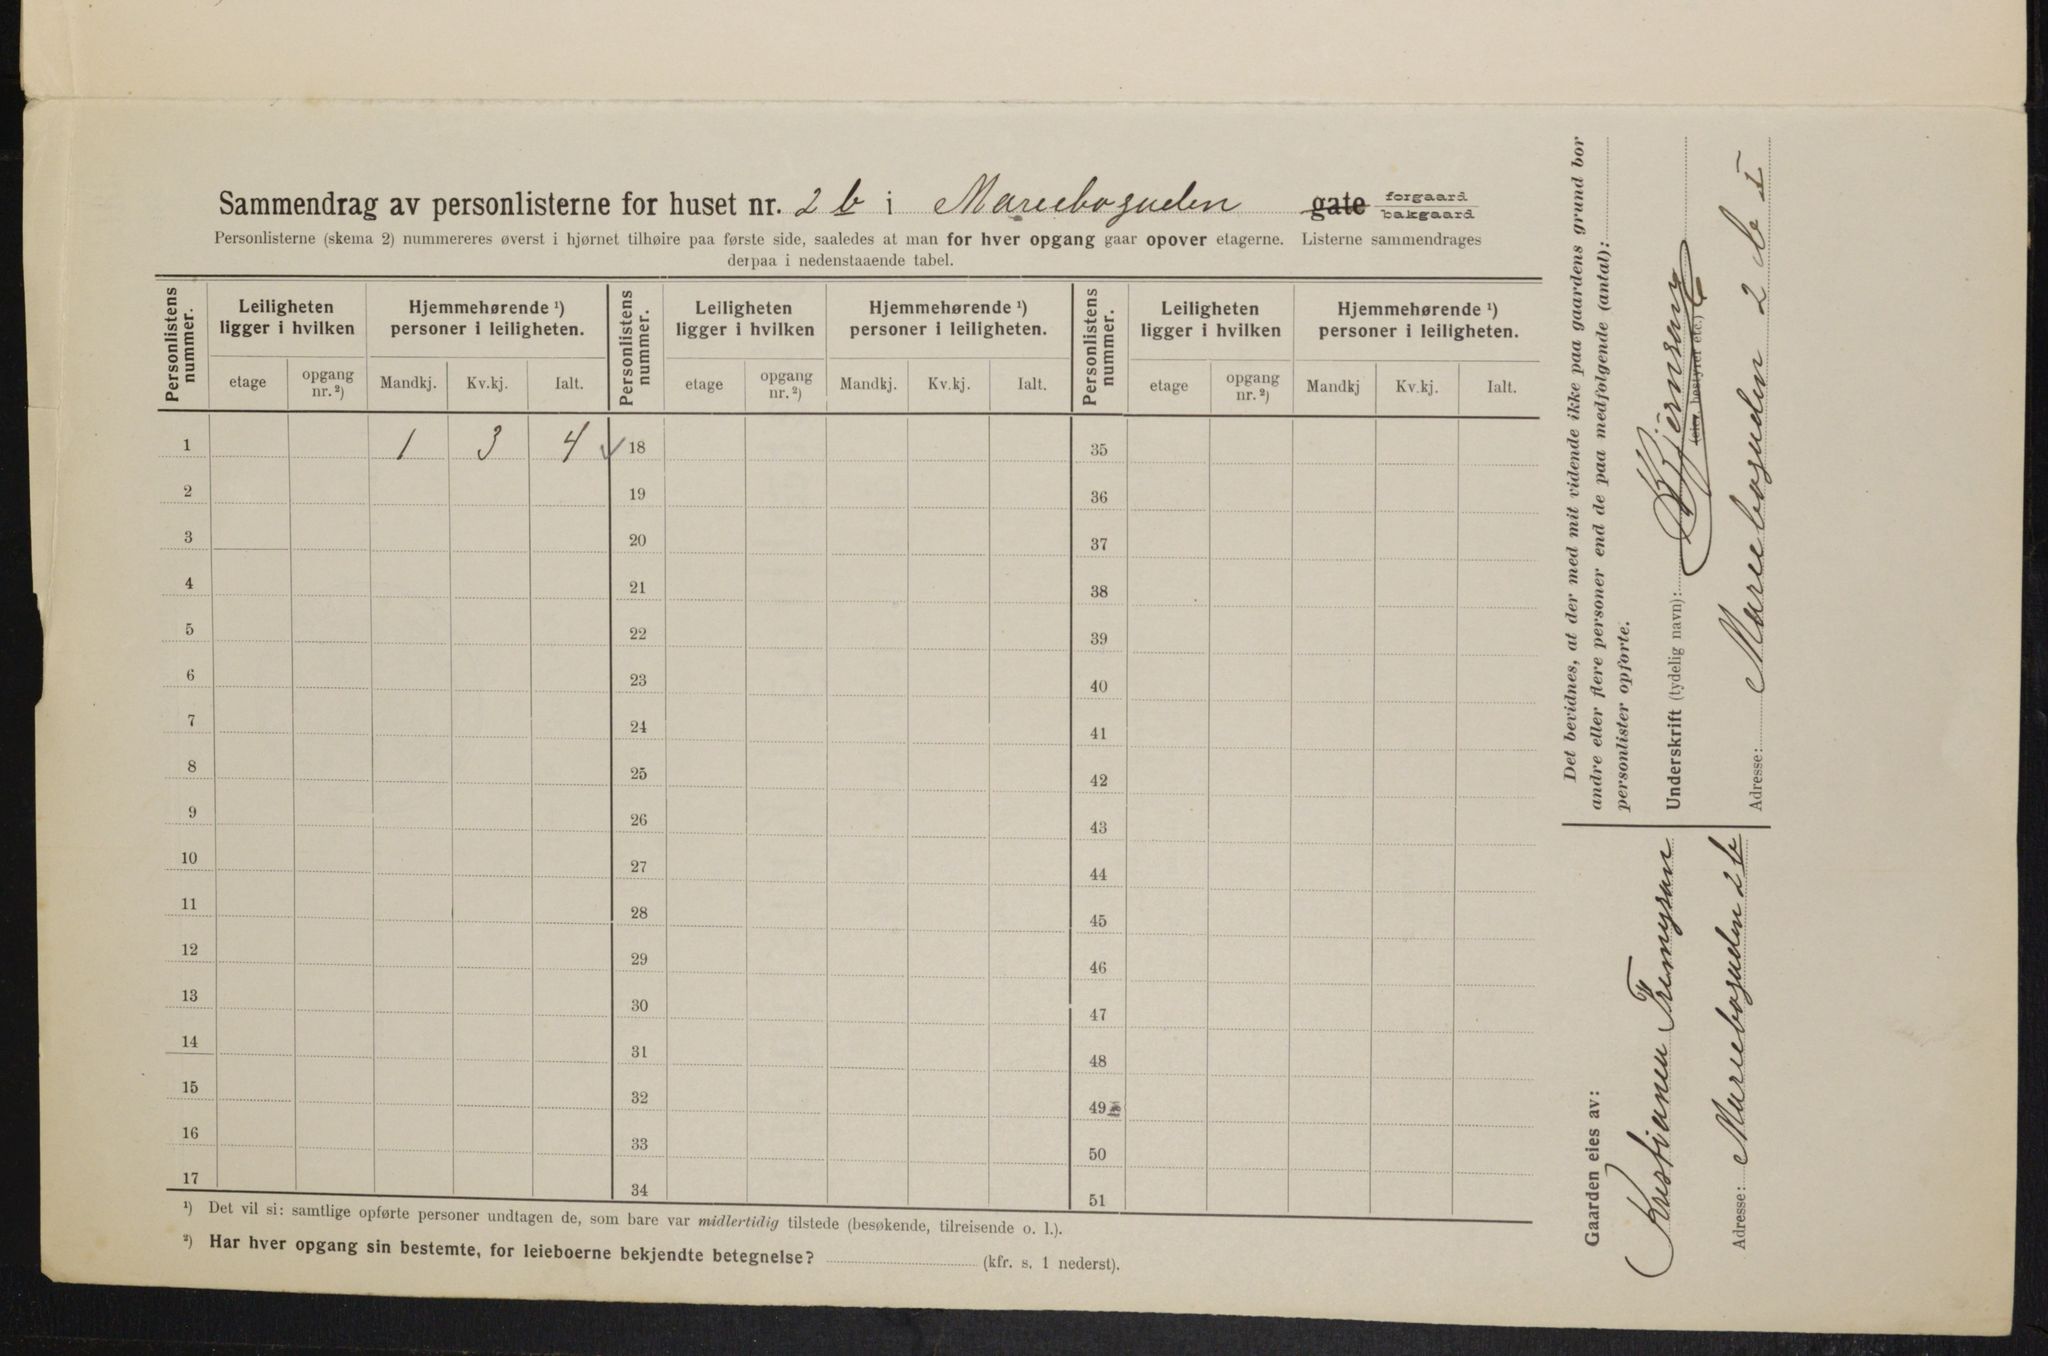 Sammendrag av personlisterne for huset nr. 2 b i Mariebogaden gate forgaard bakgaard
Personlisterne (skema 2) nummereres øverst i hjørnet tilhøire paa første side, saaledes at man for hver opgang gaar opover etagerne. Listerne sammendrages
derpaa i nedenstaaende tabel.
Personlistens nummer. Leiligheten ligger i hvilken Hjemmehørende ¹) personer i leiligheten. Personlistens nummer. Leiligheten ligger i hvilken Hjemmehørende ¹) personer i leiligheten. Personlistens nummer. Leiligheten ligger i hvilken Hjemmehørende ¹) personer i leiligheten.
etage opgang nr. ²) Mandkj. Kv.kj. Ialt. etage opgang nr. ²) Mandkj. Kv.kj. Ialt. etage opgang nr. ²) Mandkj Kv.kj. Ialt.
1 1 3 4 ✓ 18 35
2 19 36
3 20 37
4 21 38
5 22 39
6 23 40
7 24 41
8 25 42
9 26 43
10 27 44
11 28 45
12 29 46
13 30 47
14 31 48
15 32 49
16 33 50
17 34 51
¹) Det vil si: samtlige opførte personer undtagen de, som bare var midlertidig tilstede (besøkende, tilreisende o. l.).
²) Har hver opgang sin bestemte, for leieboerne bekjendte betegnelse? (kfr. s. 1 nederst).
Det bevidnes, at der med mit vidende ikke paa gaardens grund bor
andre eller flere personer end de paa medfølgende (antal):
personlister opførte.
Underskrift (tydelig navn):
(eier, bestyrer etc.)
Adresse: Mariebogaden 2 b I
Gaarden eies av:
Kristiane
Adresse: Mariebogaden 2 b